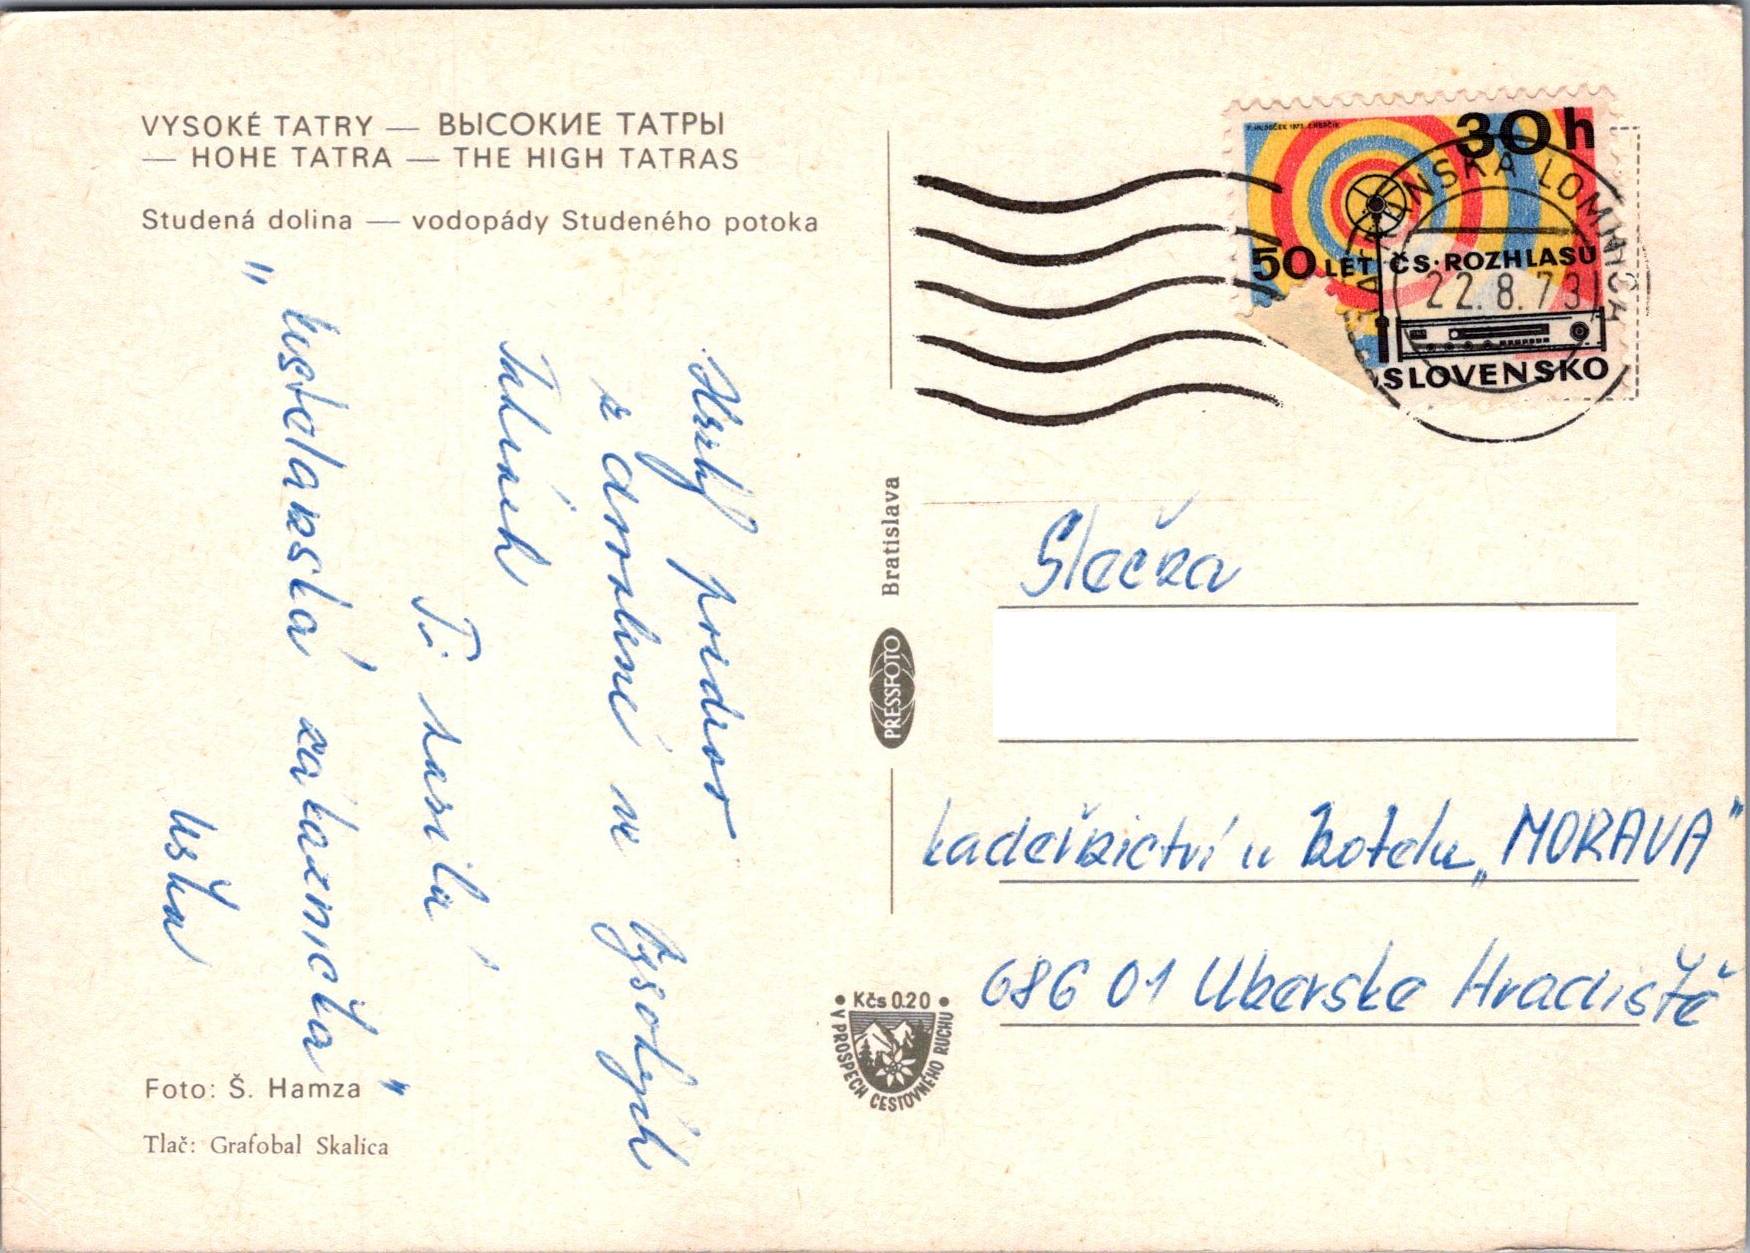 VYSOKÉ TATRY — ВЫСОКИЕ ТАТРЫ
— HOHE TATRA — THE HIGH TATRAS
Studená dolina — vodopády Studeného potoka
Hezký pozdrav
z dovolené ve Vysokých
Tatrách
Ti zasílá
"
zákaznička"
Foto: Š. Hamza
Tlač: Grafobal Skalica
Bratislava
PRESSFOTO
• Kčs 0.20 •
V PROSPECH CESTOVNÉHO RUCHU
30h
50 LET ČS·ROZHLASU
SLOVENSKO
TATRANSKÁ LOMNICA
22.8.73
Slečna
kadeřnictví u hotelu „MORAVA"
686 01 Uherske Hradiště